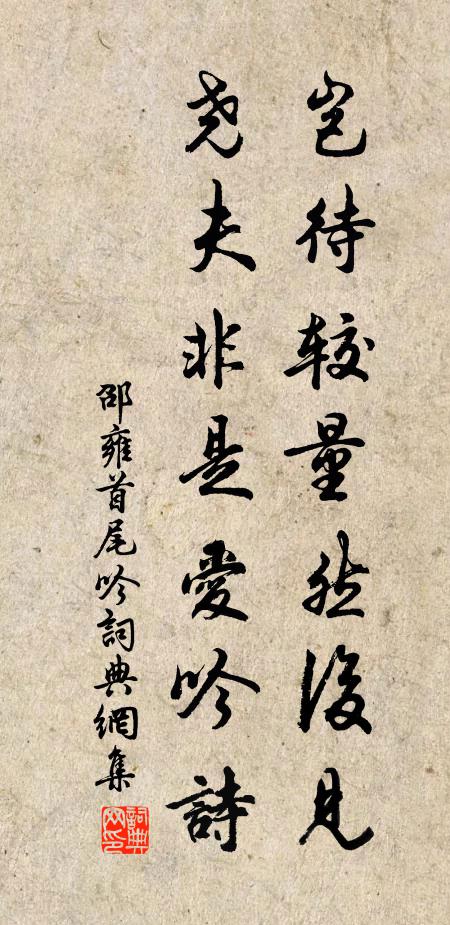 豈待較量然後見
堯夫非是愛吟詩
邵雍首尾吟詞典網集
詞典
网印